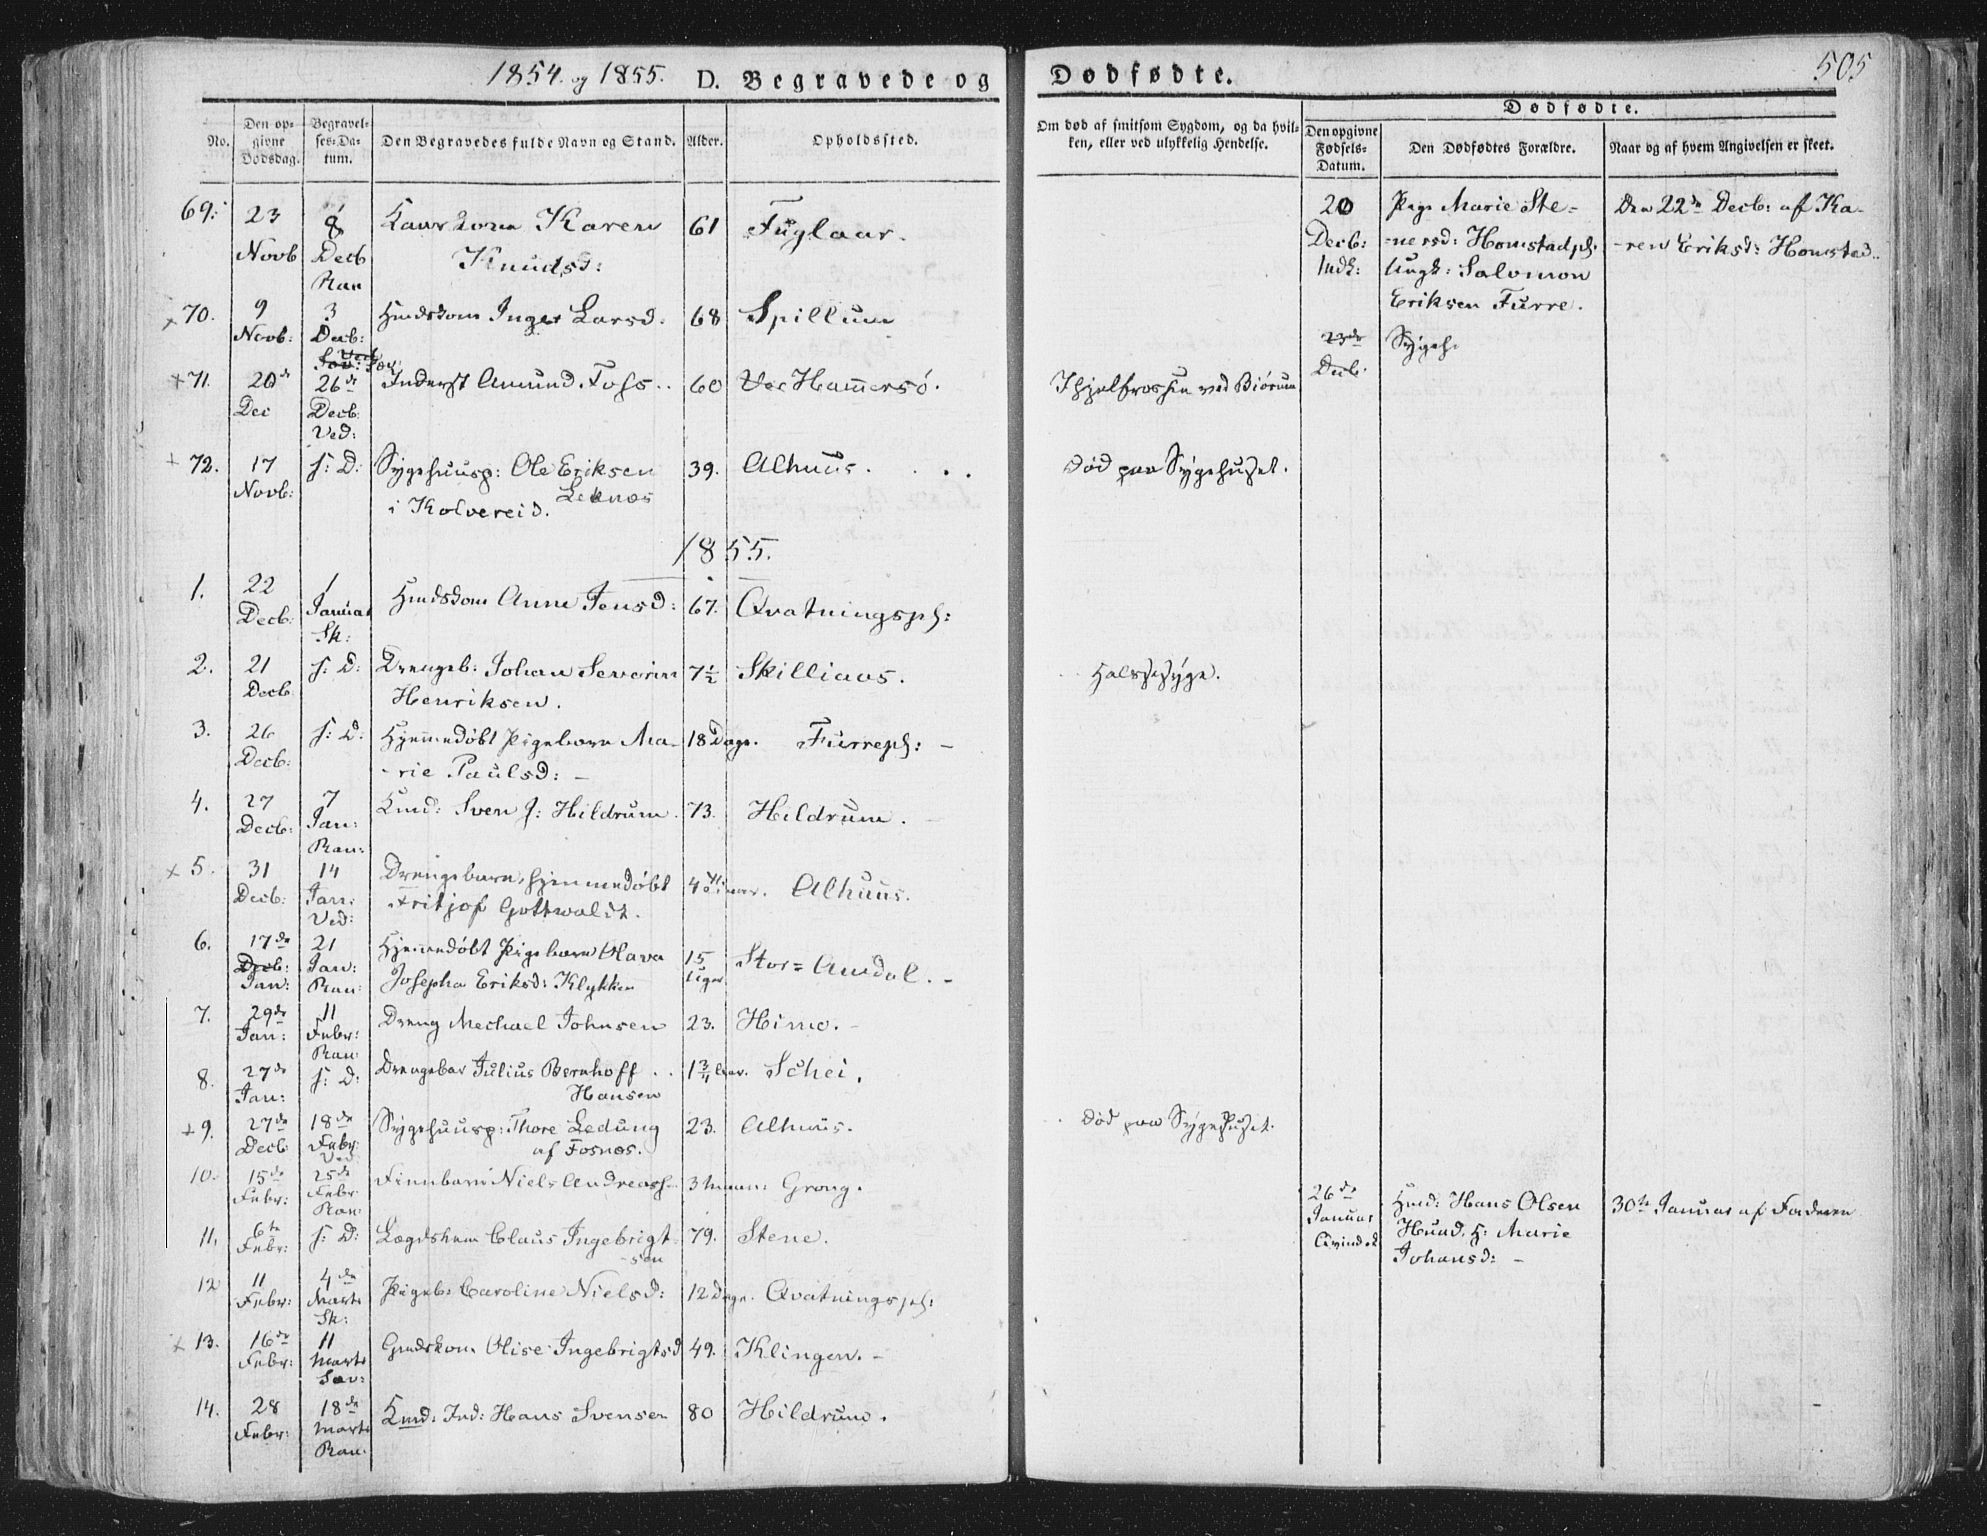 1854. og 1855. D. Begravede og Dødfødte. 505
No.
Den opgivne Dødsdag.
Begravelses-Datum.
Den Begravedes fulde Navn og Stand.
Alder.
Opholdssted.
Om død af smitsom Sygdom, og da hvilken, eller ved ulykkelig Hendelse.
Dødfødte.
Den opgivne Fødsels-Datum.
Den Dødfødtes Forældre.
Naar og af hvem Angivelsen er skeet.
69. 23 8 Karen 61 Fuglaar.
Novb Decb Knudsd:
Ran
70. 9 3 Huuskone Inger Larsd. 68 Spillum
Novb: Decb:
71. 20de 26de Inderst Amund Foss 60 Hammersø. Ihjelfrossen ved Biørum
Dec Decb.
Ved:
72. 17 s: D: Sygehuusp: Ole Eriksen 39. Alhuus. død paa Sygehuset.
Novb: Leknæs
i Kolvereid.
20 Pige Marie Ste- Den 22de Decb: af Ka-
Decb: -nersd: Homstadpl: -ren Eriksd: Homstad.
Ungk: Salomon
Eriksen Furre.
23de Sygeh.
Decb.
1855.
1. 22 1 Huuskone Anne Jensd: 67. Qvatningspl:
Decb: Januar
Sk:
2. 21 s: D: Drengeb: Johan Severin 7½ Skilliaas. Halssyge.
Decb Henriksen.
3. 26 s: D: Hjemmedøbt Pigebarn Ma- 18 Dage. Furrepl: -
Decb: -rie Paulsd: -
4. 27 7 Sven J: Hildrum. 73. Hildrum.
Decb: Jan:
Ran:
5. 31 14 Drengebarn, hjemmedøbt 4 Timer. Alhuus.
Decb: Jan: Fritjof Gottwaldt.
Ved:
6. 17de 21 Hjemmedøbt Pigebarn Olava 15 Stor=Amdal. -
Decb: Jan: Josepha Eriksd: Klykken Uger
Jan: Ran:
7. 29de 11 Dreng Mechael Johnsen 23. Himo. -
Jan: Febr:
Ran:
8. 27de s: D: Drengebar Julius Bernhoff 1¾ Aar. Schei.
Jan: Hansen
9. 27de 18de Sygehuusp: Thore Ledung 23. Alhuus. død paa Sygehuset.
Decb Febr af Fosnæs.
Ved
10. 15de 25de Finnbarn Niels Andreas 3 Grong.
Febr: Febr
Ran:
11. 6te s: D: Lægdslem Claus Ingebrigt- 79. Stene.
Febr: -sen
26de Huusm: Hans Olsen 30te Januar af Faderen
Januar H: Marie
Qvindek Johansd: -
12 11 4de Pigeb: Caroline Nielsd: 12 Dage. Qvatningspl:
Febr: Marts
Sk:
13. 16de 11 Olise Ingebrigtsd 49. Klingen. -
Febr: Marts
Sæv:
14. 28 18de Ind: Hans Svensen 80 Hildrum.
Febr: Marts
Ran.